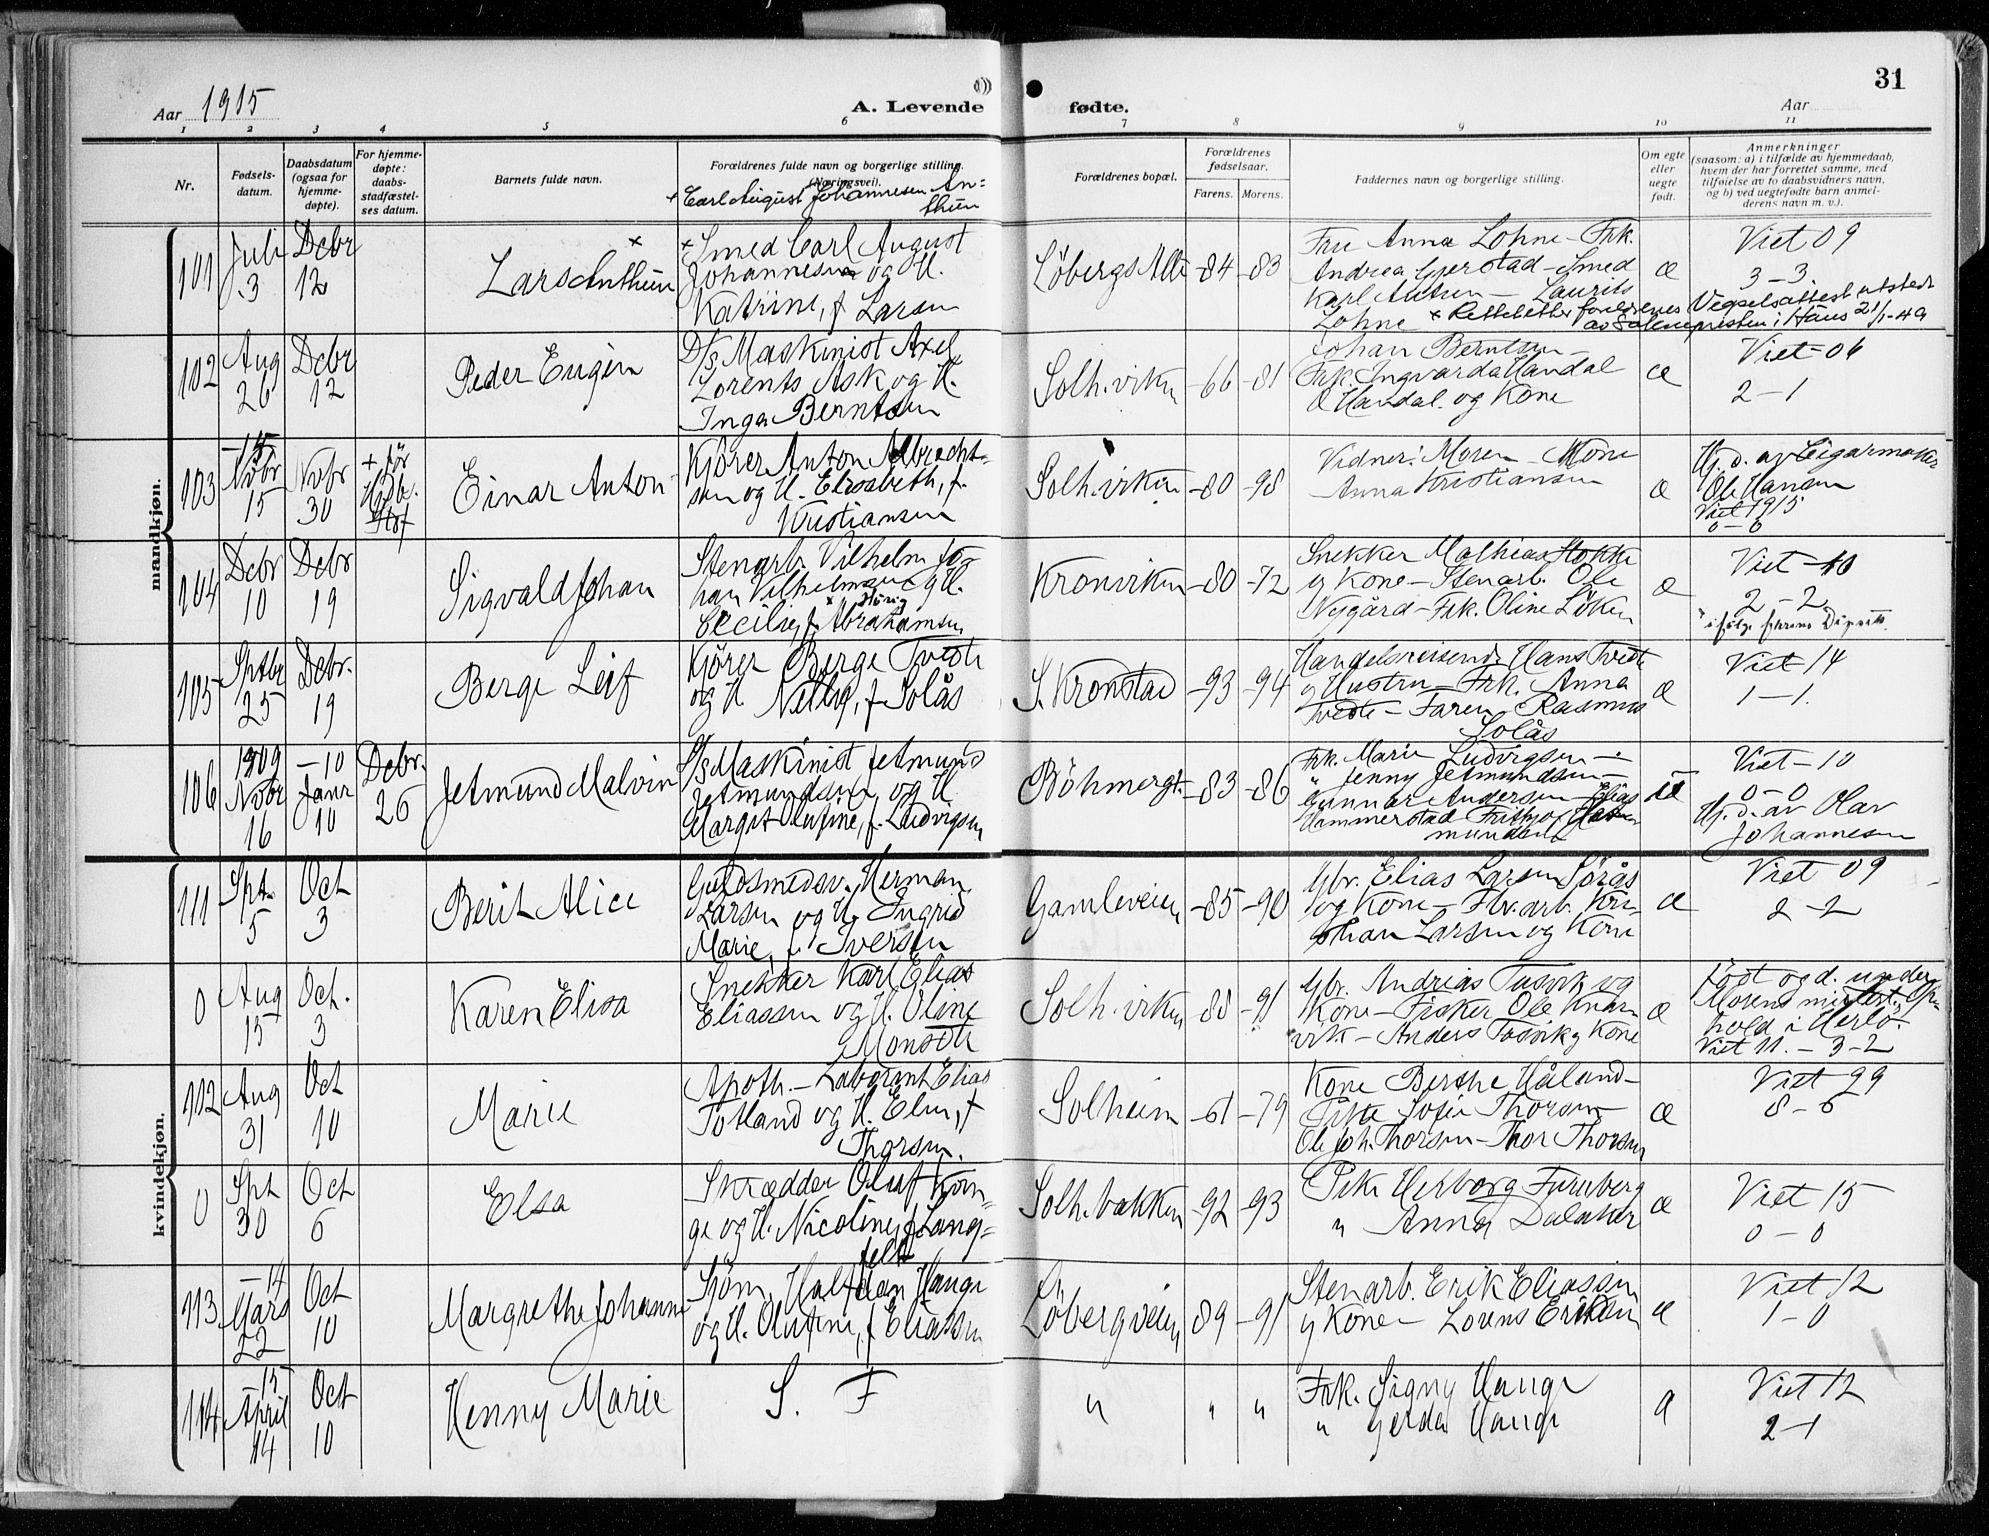 Aar 1915
A. Levende
fødte.
31
Aar
1 2 3 4 5 6 7 8 9 10 11
Nr.
Fødsels-
datum.
Daabsdatum
(ogsaa for
hjemme-
døpte).
For hjemme-
døpte:
daabs-
stadfæstel-
ses datum.
Barnets fulde navn.
Forældrenes fulde navn og borgerlige stilling.
(Næringsvei).
+ Carl August Johannesen An=
thun
Forældrenes bopæl.
Forældrenes
fødselsaar.
Farens. Morens.
Faddernes navn og borgerlige stilling.
Om egte
eller
uegte
født.
Anmerkninger
(saasom: a) i tilfælde av hjemmedaab,
hvem der har forrettet samme, med
tilføielse av to daabsvidners navn,
og b) ved uegtefødte barn anmel-
derens navn m. v.).
mandkjøn.
101
Juli
3
Debr
12
Lars Anthun
x Smed Carl August
Johannesen og H.
Katrine, f Larsen
Löbergs Allé
-84 -83
Fru Anna Lohne - Frk.
Andrea Gjerstad - Smed
Karl Antun - Laurits
Lohne
æ
Viet 09
3-3
x Rettet etter foreldrenes Vegselsattest utstedt
av Soknepresten i Haus 21/1-49
102
Aug
26
Debr
12
Peder Eugen
D/s Maskinist Axel
Lorents Ask og H.
Inga Berntsen
Solh.viken
-66 -81
Johan Berntsen -
Frk. Ingvarda Handal
O Handal og Kone
æ
Viet 06
2-1
103
Novbr
15
Novbr
30
Einar Anton
Kjörer Anton Albrecht-
sen og H. Elisabeth, f.
Kristiansen
Solh.viken
-80 -98
Vidner: Moren - Kone
Anna Kristiansen
æ
Hj. d. av Cigarmaker
Ole Hansen
Viet 1915
0-0
104
Debr
10
Debr
19
Sigvald Johan
Stenarb. Vilhelm Jo-
han Vilhelmsen og H.
Cecilie, f. Abrahamsen
Kronviken
-80 -72
Snekker Mathias Stokke
og Kone - Stenarb. Ole
Nygård - Frk. Oline Löken
æ
Viet -10
2-2
105
Septbr
25
Debr.
19
Berge Leif
Kjörer Berge Tvedt
og H. Nelly, f Solås
S. Kronstad
-93 -94
Handelsreisend. Hans Tvedt
og Hustru - Frk. Anna
Tvedt - Faren Rasmus
Solås
æ
Viet 14
1-1.
106
1909
Nvbr
16
-10
Janr
10
Debr.
26
Jetmund Malvin
D/s Maskinist Jetmund
Jetmundsen og H.
Margit Olufine, f. Ludvigsen
Böhmergt.
-83 -86
Frk. Marie Ludvigsen -
" Jenny Jetmundsen -
Gunnar Andersen - Elias
Hammerstad
Viet -10
0-0
Hj. d. av Olav
Johannesen
kvindekjøn.
111
Spt.
5
Oct
3
Berit Alice
Guldsmedsv. Herman
Larsen og H. Ingrid
Marie, f. Iversen
Gamleveien
-85 -90
Gbr. Elias Larsen Sörås
og Kone - Fbr. arb. Kri-
Johan Larsen og Kone
æ
Viet 09
2-2
0
Aug
15
Oct.
3
Karen Elisa
Snekker Karl Elias
Eliassen og H. Oline
Monsdtr
Solh.viken
-88 -91
Gbr. Andrias Tosvik og
Kone - Fisker Ole Knar-
vik - Anders Tosvik og Kone
æ
Födt og d. under
Morens midlert. Op-
hold i Herlö.
Viet 11. - 3-2
112
Aug
31
Oct
10
Marie
Apoth. - Laborant Elias
Totland og H. Elen, f
Thorsen.
Solheim
-61 -79
Kone Berthe Håland -
Pike Sofie Thorsen -
Ole Joh. Thorsen - Thor Thorsen
æ
Viet 99
8-6
0
Spt
30
Oct
6
Elsa
Skrædder Oluf Kon-
ge og H. Nicoline, f. Lang=
felt
Solh.bakken
-92 -93
Pike Herborg Furuberg
" Anna Dalaker
æ
Viet 15
0-0
113
-14
Mars
22
Oct
10
Margrethe Johanne
Sjöm. Halfdan Hauge
og H. Olufine, f Eliassen
Löbergveien
89 -91
Stenarb. Erik Eliassen
og Kone - Lorens Eriksen
æ
Viet 12
1-0
114
-15
April
14
Oct
10
Henny Marie
S. F
" " "
Frk. Signy Hauge
" Gerda Hauge
æ
Viet 12
2-1